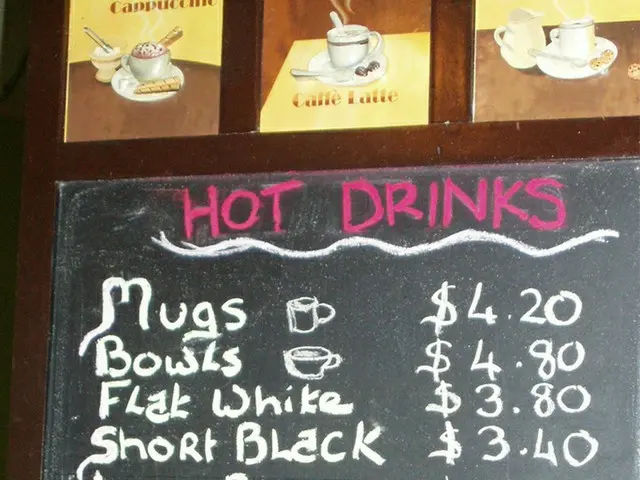 Cappuccino
Caffè Latte
HOT DRINKS
Mugs $4.20
Bowls $4.80
Flat White $3.80
Short Black $3.40